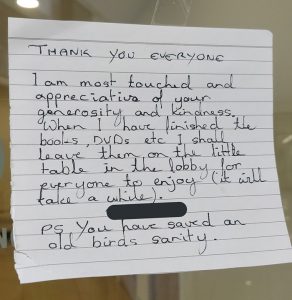 THANK YOU EVERYONE
I am most touched and
appreciative of your
generosity and kindness.
When I have finished the
books, DVDs etc I shall
leave them on the little
table in the lobby for
everyone to enjoy (it will
take a while).
PS You have saved an
old birds sanity.